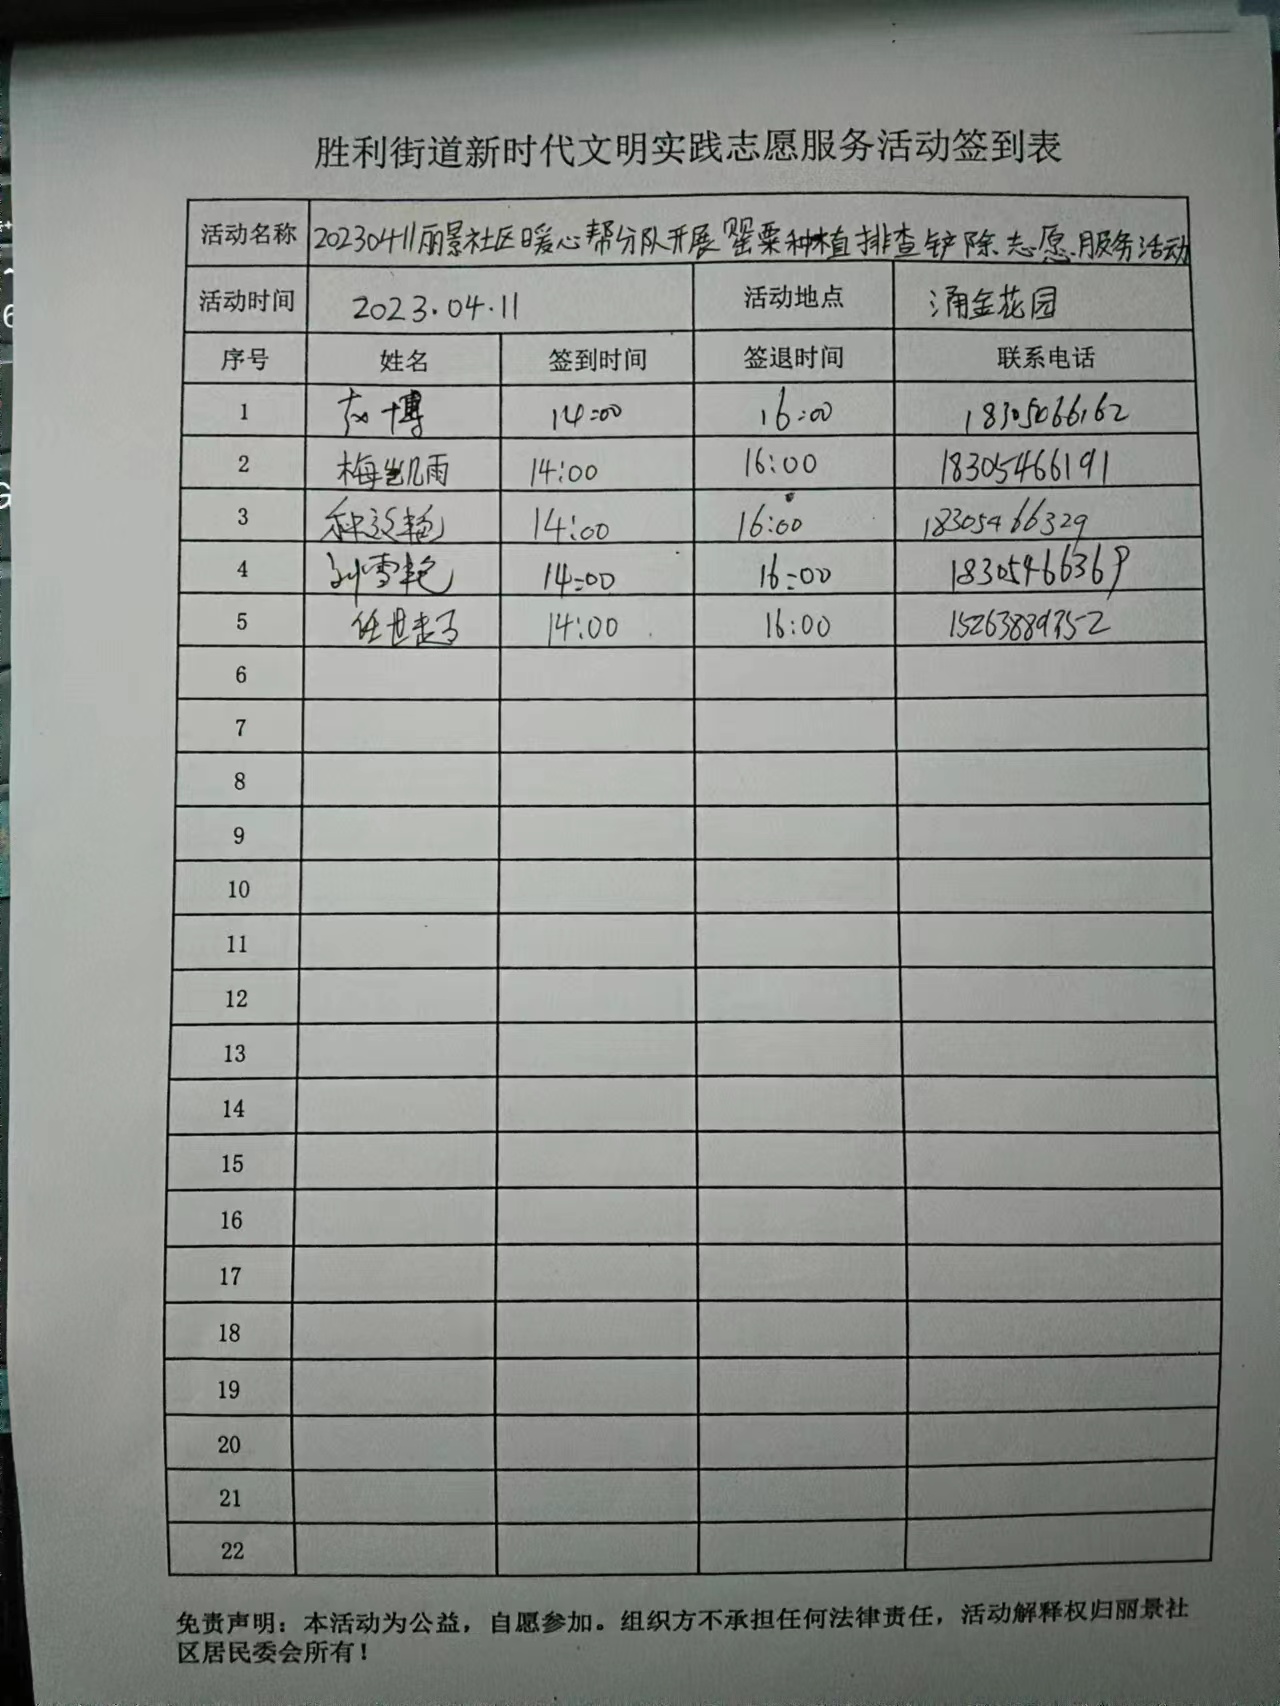 胜利街道新时代文明实践志愿服务活动签到表
活动名称 20230411丽景社区暖心帮分队开展罂粟种植排查铲除志愿服务活动
活动时间 2023.04.11 活动地点 涌金花园
序号 姓名 签到时间 签退时间 联系电话
1 14:00 16:00
2 梅凯雨 14:00 16:00 18305466191
3 14:00 16:00 18305466329
4 刘雪艳 14:00 16:00 18305466369
5 14:00 16:00
6
7
8
9
10
11
12
13
14
15
16
17
18
19
20
21
22
免责声明：本活动为公益，自愿参加。组织方不承担任何法律责任，活动解释权归丽景社
区居民委会所有！